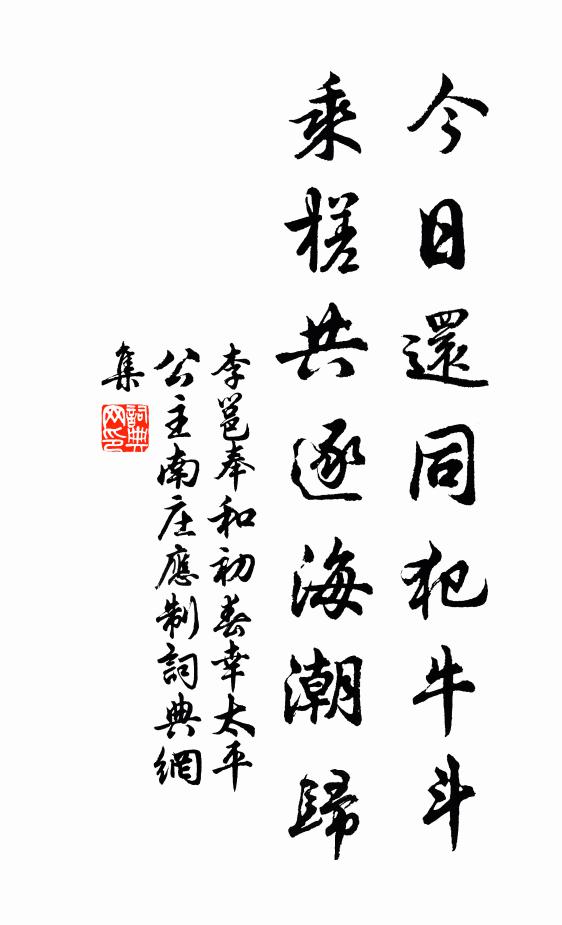 今日還同犯牛斗
乘槎共逐海潮歸
李邕奉和初春幸太平
公主南庄應制詞典網
集
詞典
网印